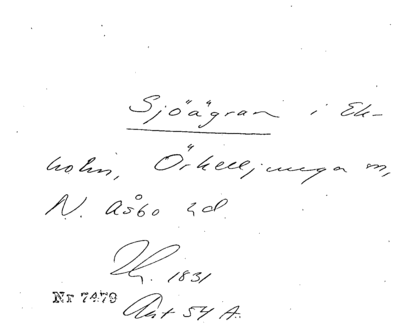 Sjöägran i Ek-
holm, Örkelljunga sn,
N. Åsbo hd
1831
Nr 7479
Akt 54 A.